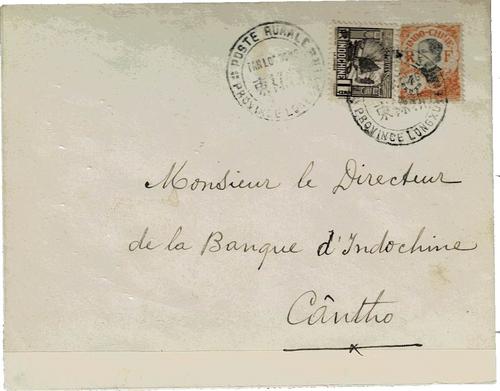 POSTE RURALE
PROVINCE LONGX
INDOCHINE
INDO-CHINE
PROVINCE LONGX
Monsieur le Directeur
de la Banque d'Indochine
Cântho